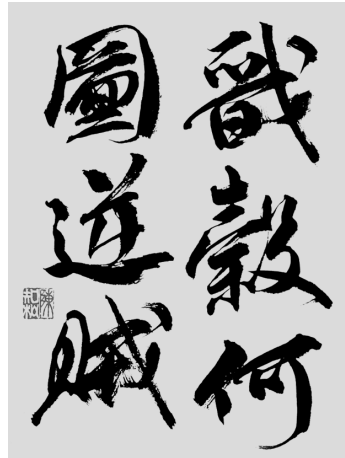 戩穀何
圖逆賊